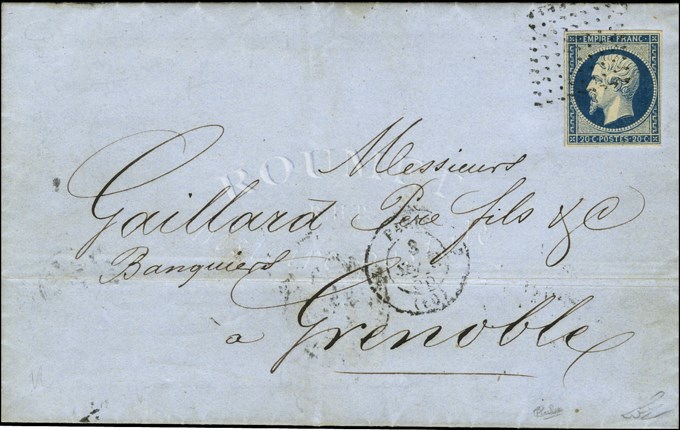 EMPIRE FRANC
20·C·POSTES·20·C
Messieurs
Gaillard Père fils & C
Banquiers
à Grenoble
ROUMET